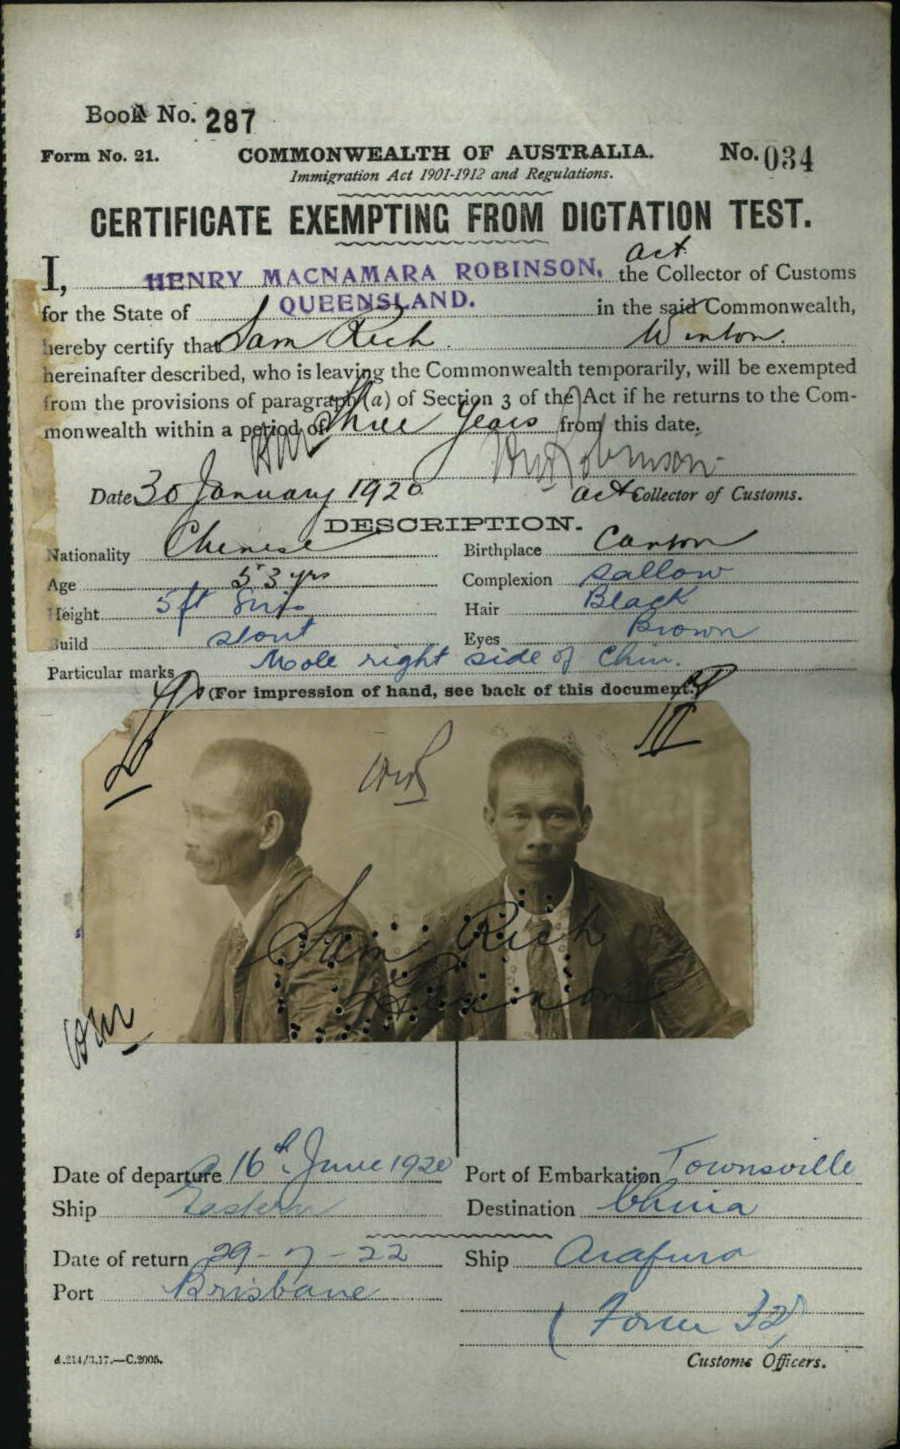 Book No. 287
Form No. 21. COMMONWEALTH OF AUSTRALIA. No. 034
Immigration Act 1901-1912 and Regulations.
CERTIFICATE EXEMPTING FROM DICTATION TEST.
act.
I, HENRY MACNAMARA ROBINSON, the Collector of Customs
for the State of QUEENSLAND. in the said Commonwealth,
hereby certify that Sam Rich Winton.
hereinafter described, who is leaving the Commonwealth temporarily, will be exempted
from the provisions of paragraph (a) of Section 3 of the Act if he returns to the Com-
monwealth within a period of Three Years from this date.
HMR HMRobinson
Date 30 January 1920 act Collector of Customs.
DESCRIPTION.
Nationality Chinese Birthplace Canton
Age 53 yrs Complexion Sallow
Height 5ft Hair Black
Build stout Eyes Brown
Particular marks Mole right side of Chin.
(For impression of hand, see back of this document.)
HMR
Sam Rich
HMR
Date of departure 16th June 1920 Port of Embarkation Townsville
Ship Eastern Destination China
Date of return 29-7-22 Ship Arafura
Port Brisbane
(Form 32)
d.214/3.17.—C.2005. Customs Officers.